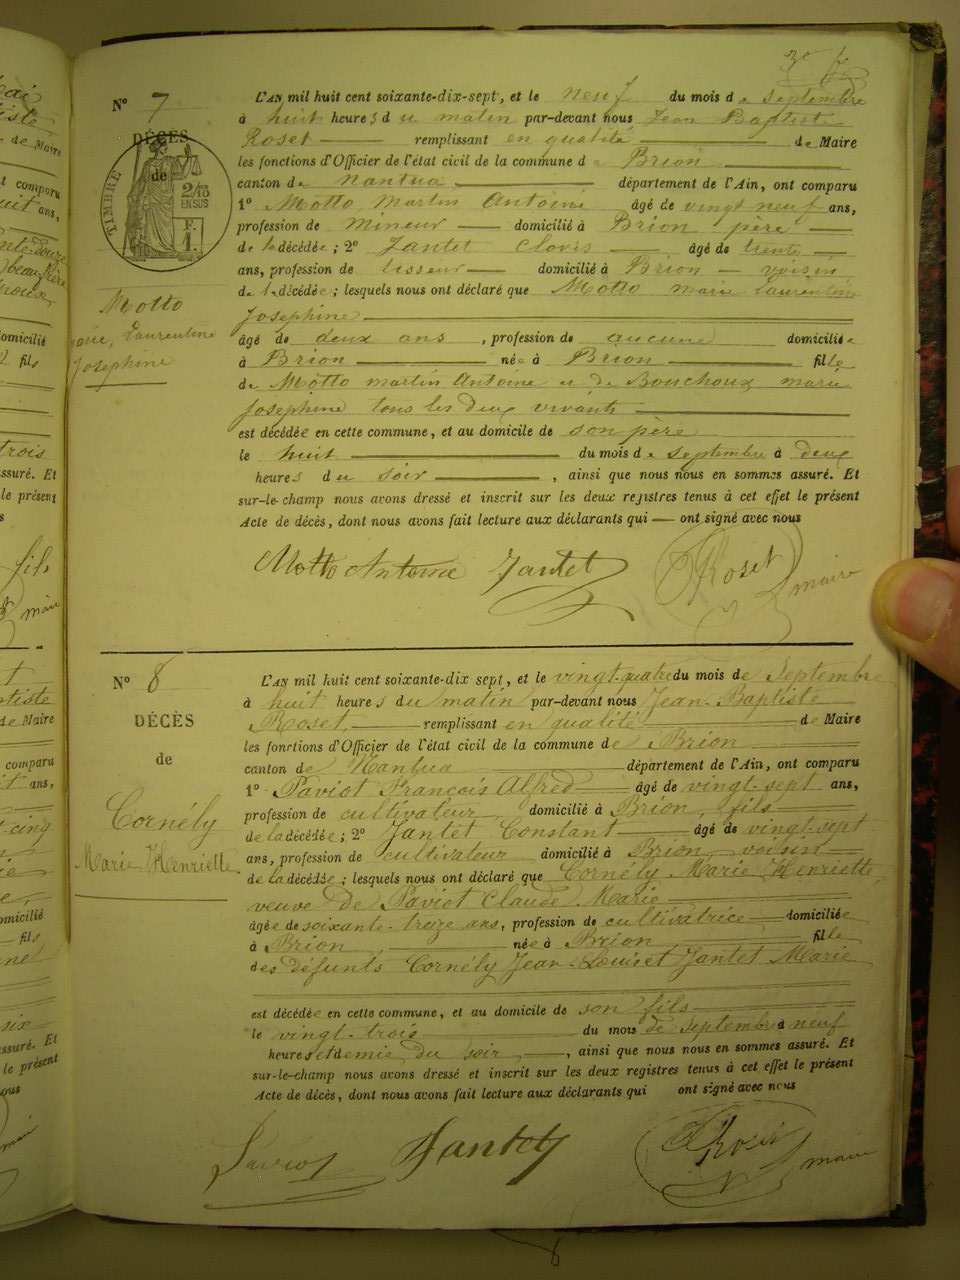 N° 7
DÉCÈS
de
TIMBRE
2/10
EN SUS
F.
1.
Motto
marie, Laurentine
Josephine
L'AN mil huit cent soixante-dix-sept, et le neuf du mois de septembre
à huit heures du matin par-devant nous Jean Baptist
Roset remplissant en qualité de Maire
les fonctions d'Officier de l'état civil de la commune de Brion
canton de Nantua département de l'Ain, ont comparu
1° Motto Martin Antoine âgé de vingt neuf ans,
profession de Mineur domicilié à Brion père
de la décédée; 2° Jantet Clovis âgé de trente
ans, profession de tisseur domicilié à Brion voisin
de la décédée; lesquels nous ont déclaré que Motto marie Laurentine
Josephine
âgé de deux ans, profession de aucune domiciliée
à Brion née à Brion fille
de Motto martin Antoine et de Bouchoux marie
Josephine tous les deux vivants
est décédée en cette commune, et au domicile de son père
le huit du mois de septembre à deux
heures du soir, ainsi que nous nous en sommes assuré. Et
sur-le-champ nous avons dressé et inscrit sur les deux registres tenus à cet effet le présent
Acte de décès, dont nous avons fait lecture aux déclarants qui ont signé avec nous
Motto Antoine Jantet Roset maire
N° 8
DÉCÈS
de
Cornély
Marie Henriette
L'AN mil huit cent soixante-dix sept, et le vingt-quatre du mois de Septembre
à huit heures du matin par-devant nous Jean-Baptiste
Roset, remplissant en qualité de Maire
les fonctions d'Officier de l'état civil de la commune de Brion
canton de Nantua département de l'Ain, ont comparu
1° Paviot François Alfred âgé de vingt-sept ans,
profession de cultivateur domicilié à Brion, fils
de la décédée; 2° Jantet Constant âgé de vingt-sept
ans, profession de cultivateur domicilié à Brion, voisin
de la décédée; lesquels nous ont déclaré que Cornély Marie Henriette,
veuve de Paviot Claude Marie
âgée de soixante-treize ans, profession de cultivatrice domiciliée
à Brion, née à Brion fille
des défunts Cornély Jean-Louis et Jantet Marie
est décédée en cette commune, et au domicile de son fils
le vingt-trois du mois de septembre à neuf
heures et demie du soir, ainsi que nous nous en sommes assuré. Et
sur-le-champ nous avons dressé et inscrit sur les deux registres tenus à cet effet le présent
Acte de décès, dont nous avons fait lecture aux déclarants qui ont signé avec nous
Paviot Jantet Roset maire